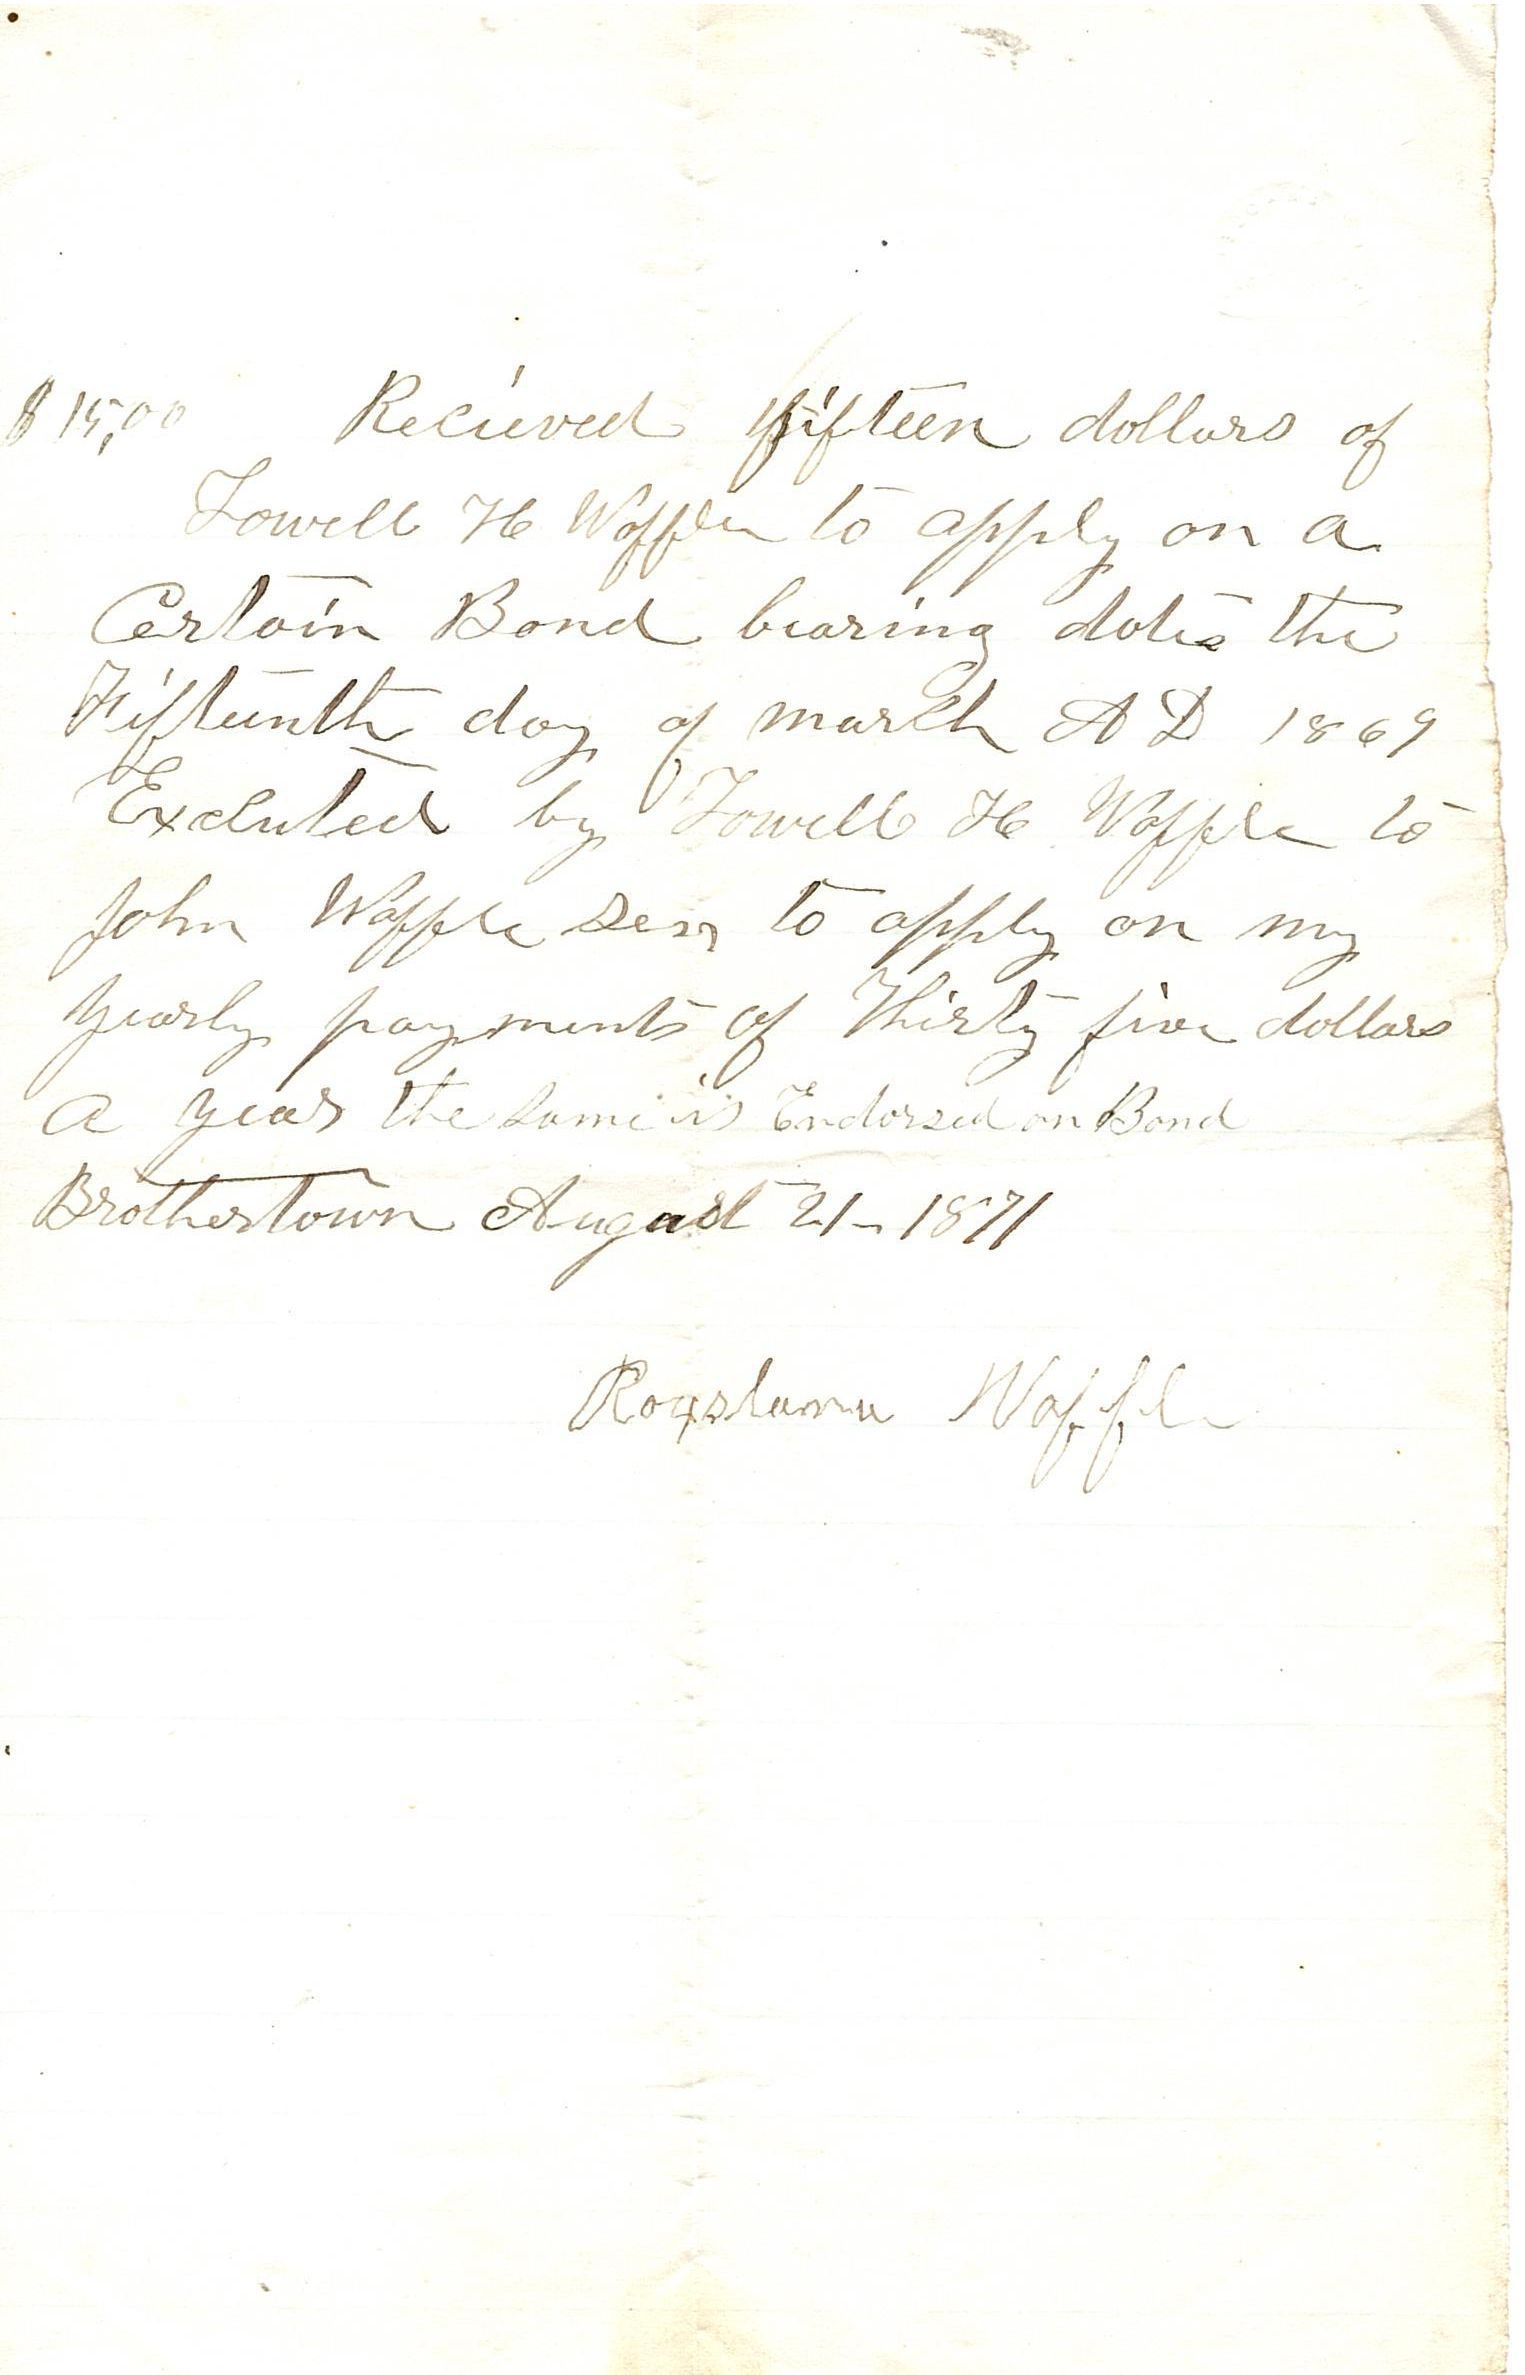 $ 15,00 Recieved fifteen dollars of
Lowell H Waffle to apply on a
Certain Bond bearing date the
Fifteenth day of march A D 1869
Excluted by Lowell H Waffle to
John Waffle Senr to apply on my
yearly payments of Thirty five dollars
a year the same is Endorsed on Bond
Brothertown August 21 - 1871
Waffle